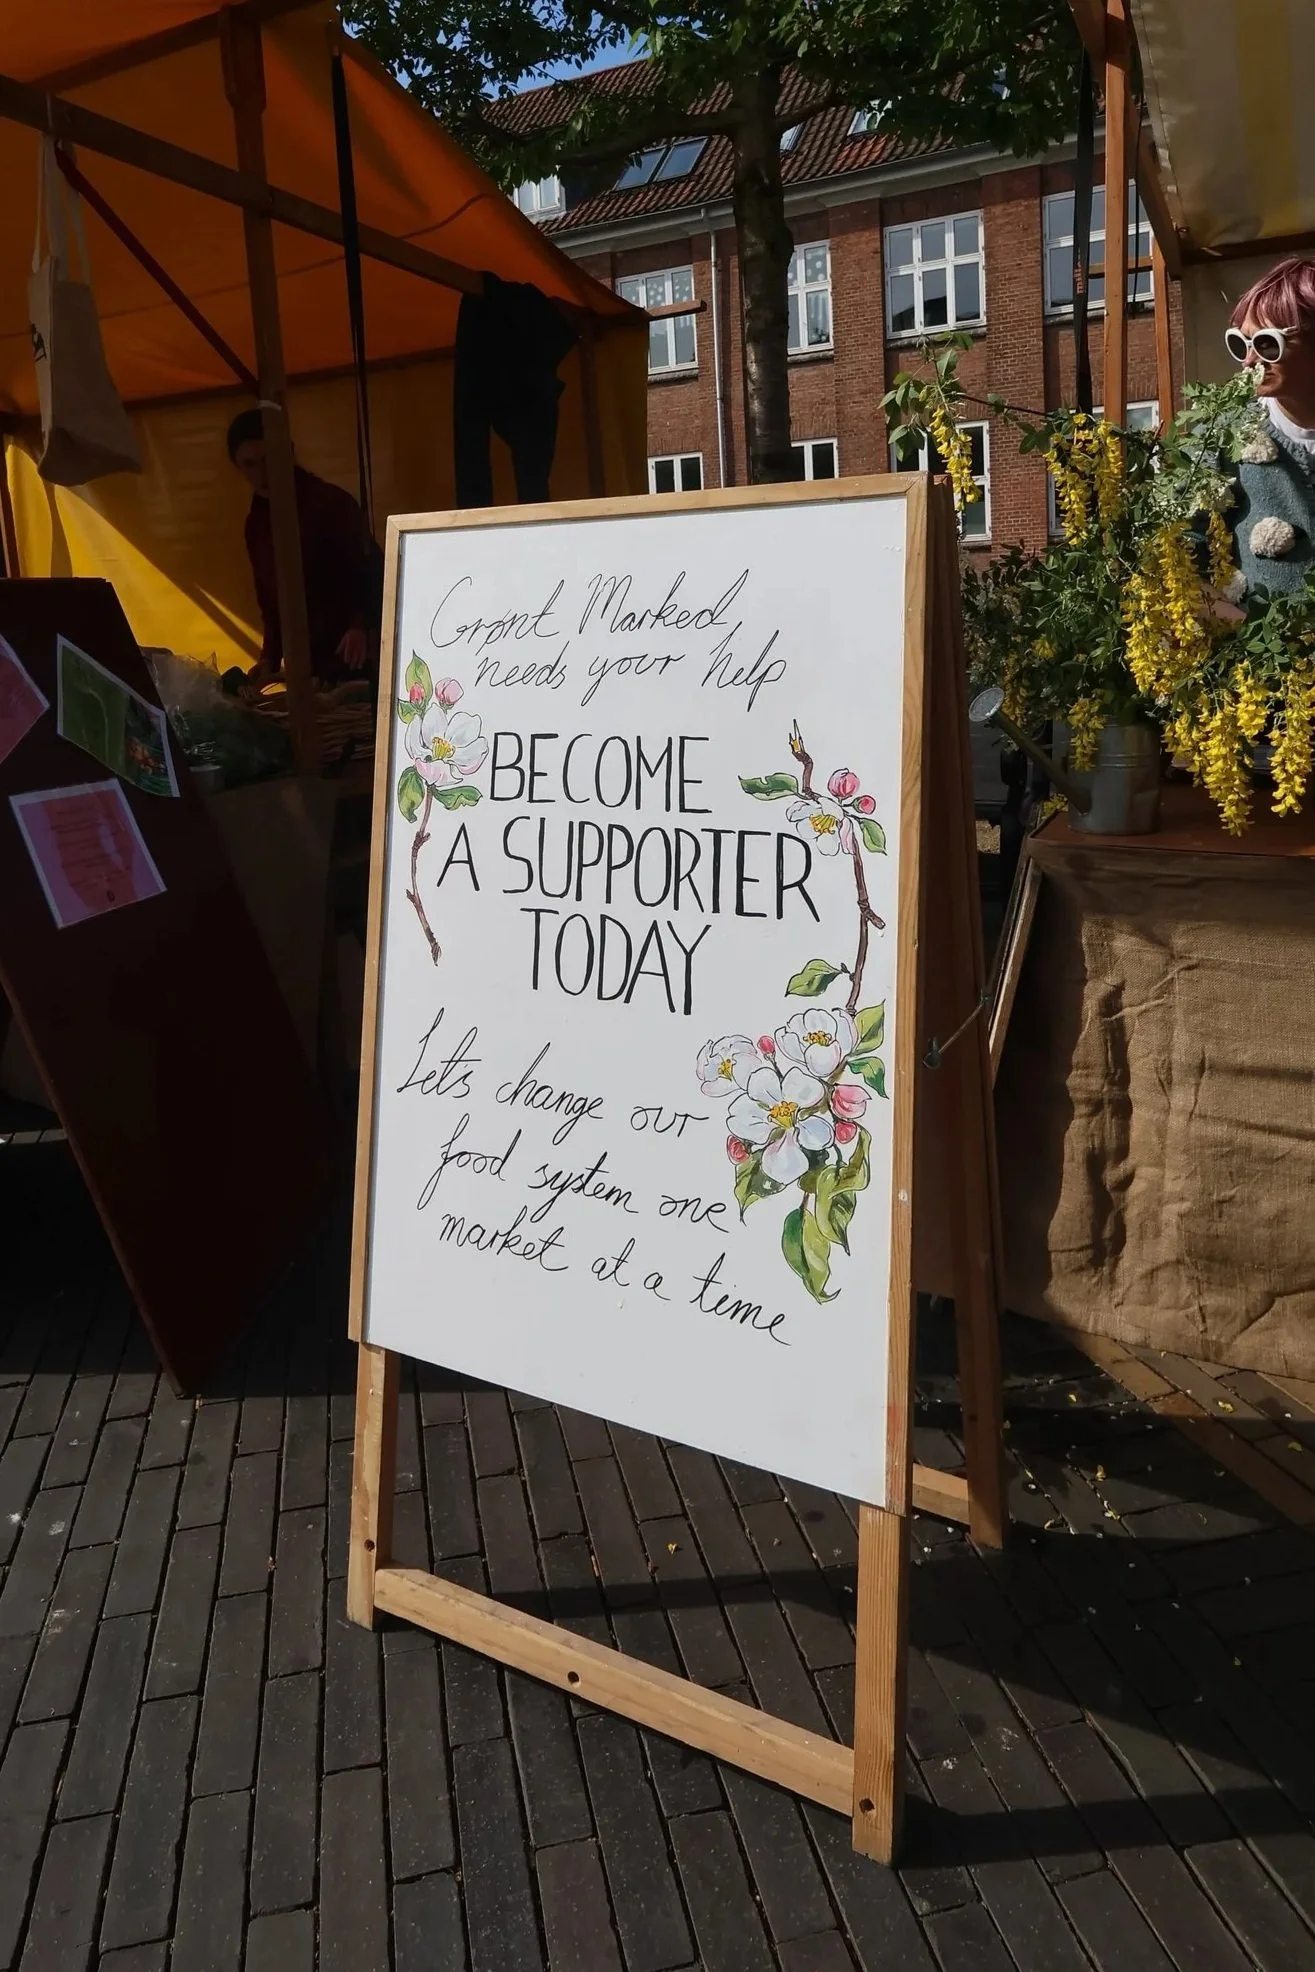 Grønt Marked
needs your help
BECOME
A SUPPORTER
TODAY
Let's change our
food system one
market at a time